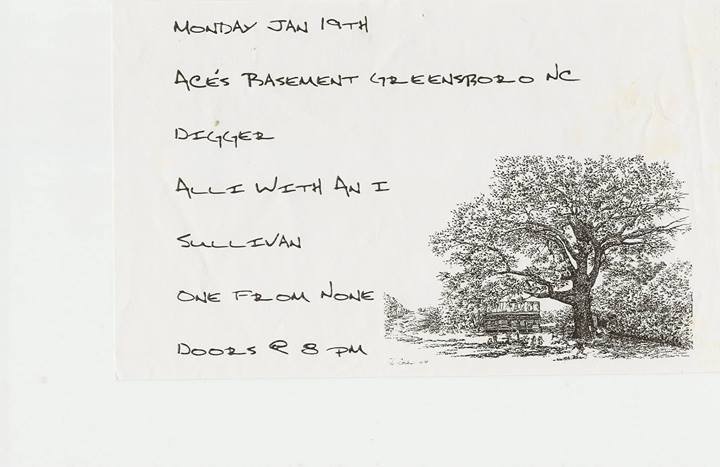 MONDAY JAN 19TH
ACE'S BASEMENT GREENSBORO NC
DIGGER
ALLI WITH AN I
SULLIVAN
ONE FROM NONE
DOORS @ 8 PM